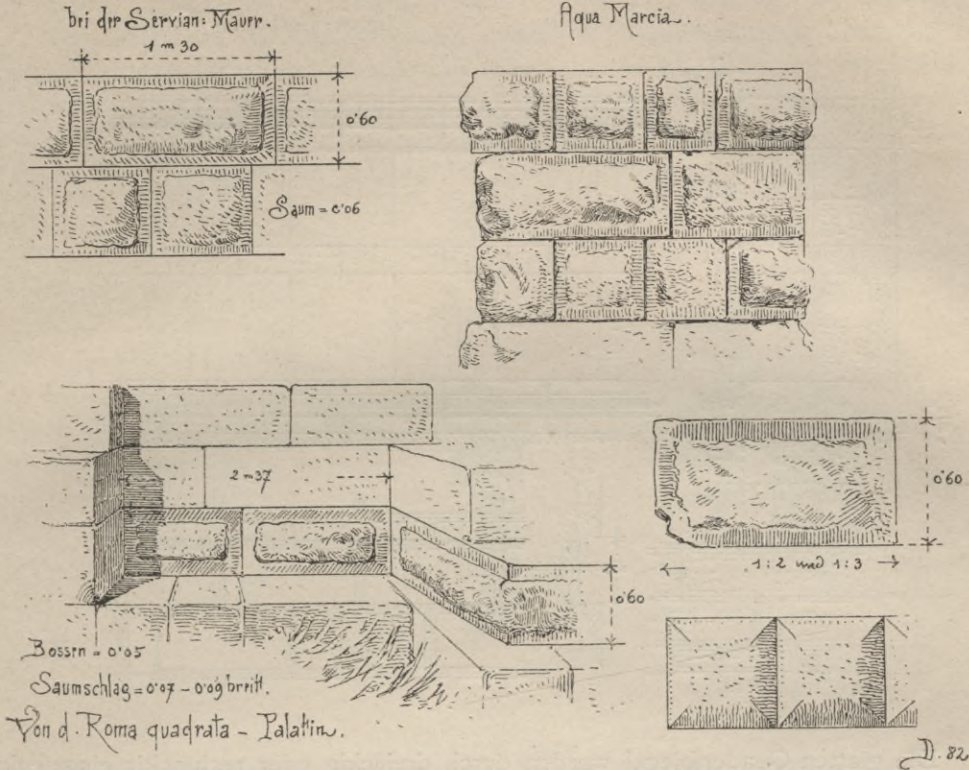 bei der Servian: Mauer.
1 m 30
0·60
Saum = 0·06
Aqua Marcia.
2 m 37
0·60
0·60
1:2 und 1:3
Bossen = 0·05
Saumschlag = 0·07 - 0·09 breit.
Von d. Roma quadrata - Palatin.
D. 82